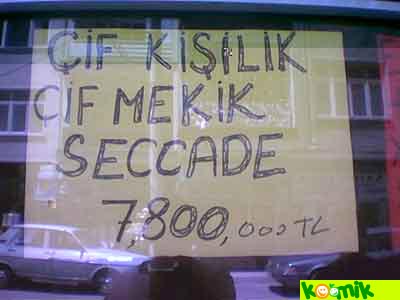 ÇİF KİŞİLİK
ÇİF MEKİK
SECCADE
7,800,000 TL
Komik